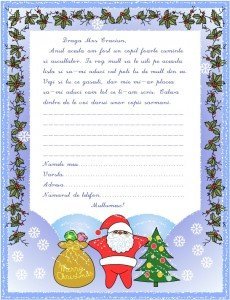 Draga Mos Craciun,
Anul acesta am fost un copil foarte cuminte
si ascultator. Te rog mult sa te uiti pe aceasta
lista si sa-mi aduci cel putin tu de mult din ea.
Vezi si tu ce gasesti, dar mie mi-ar placea
sa-mi aduci cam tot ce ti-am scris. Cateva
dintre ele voi darui unor copii sarmani.
Numele meu
Varsta
Adresa
Numarul de telefon
Multumesc!
Merry
Christmas